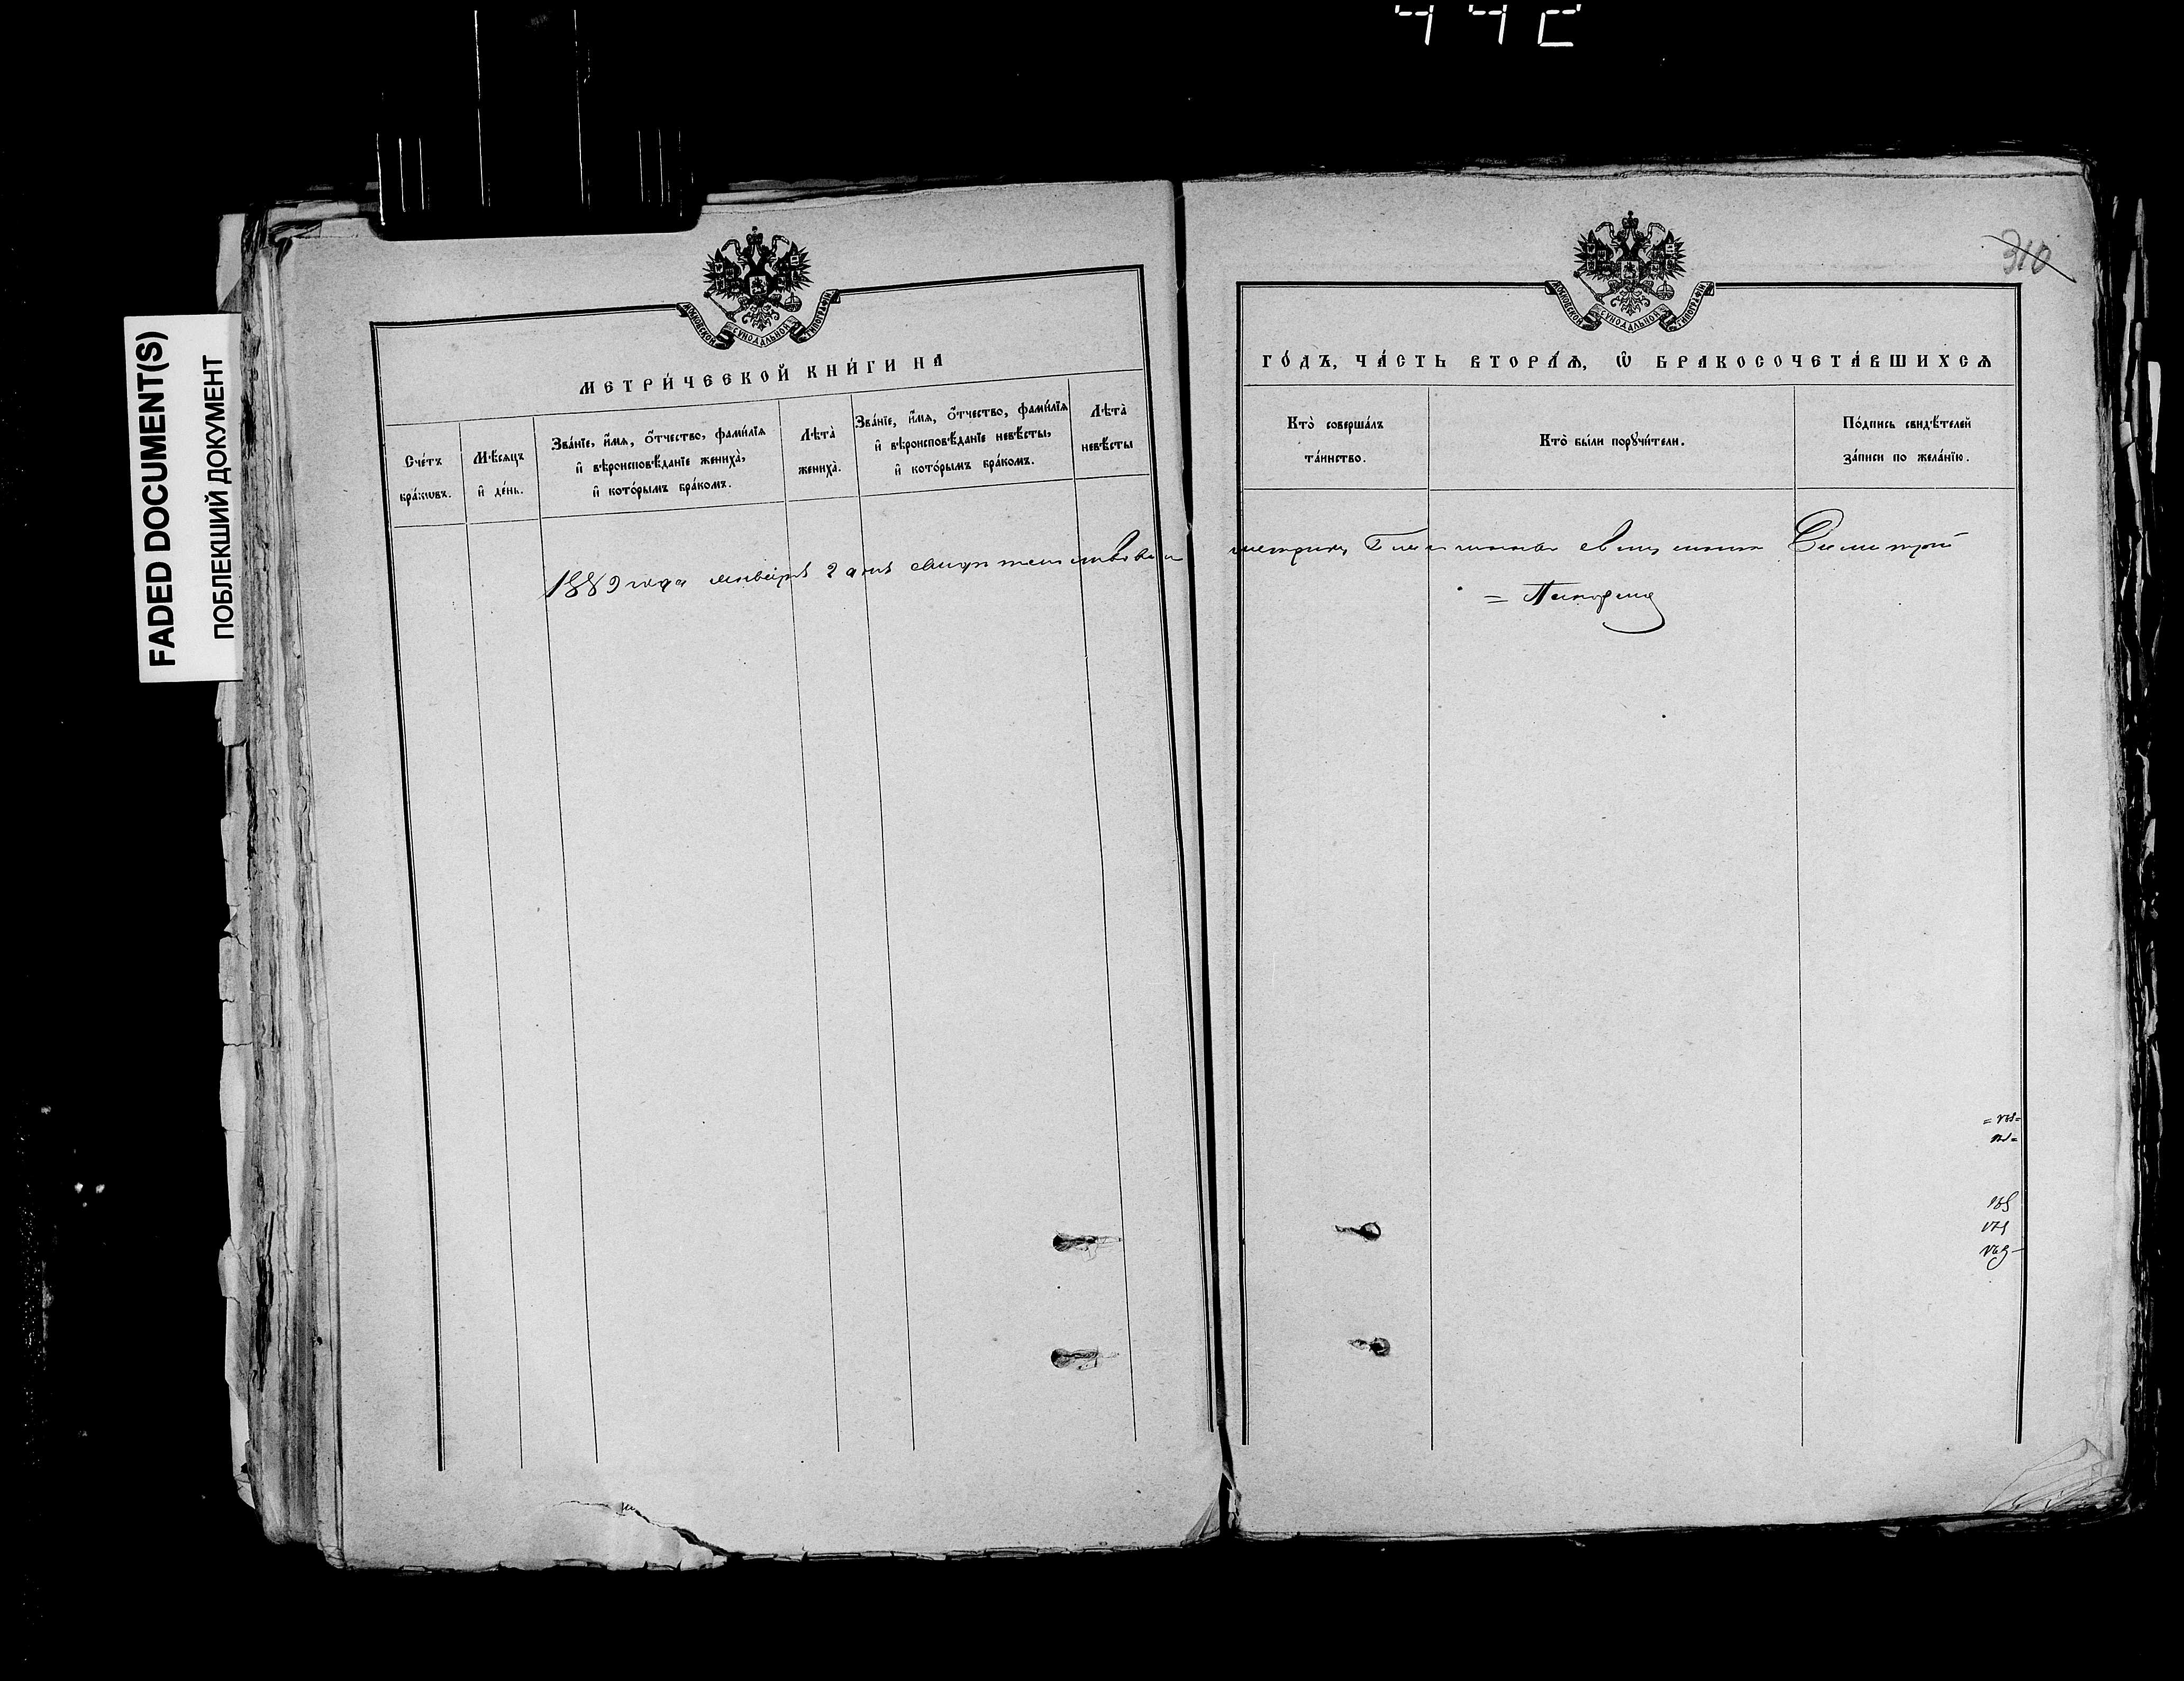 FADED DOCUMENT(S)
ПОБЛЕКШИЙ ДОКУМЕНТ
310
МОСКОВСКОЙ СѴНОДАЛЬНОЙ ТИПОГРАФІИ
МЕТРИ́ЧЕСКОЙ КНИ́ГИ НА
Сче́тъ бра́кѡвъ.
Мѣ́сяцъ и҆ де́нь.
Зва́нїе, и҆́мя, ѻ҆́тчество, фами́лїя и҆ вѣроисповѣ́данїе жениха̀, и҆ кото́рымъ бра́комъ.
Лѣта̀ жениха̀.
Зва́нїе, и҆́мя, ѻ҆́тчество, фами́лїя и҆ вѣроисповѣ́данїе невѣ́сты, и҆ кото́рымъ бра́комъ.
Лѣта̀ невѣ́сты
1889 года января 2 дня свидетельствовалъ
МОСКОВСКОЙ СѴНОДАЛЬНОЙ ТИПОГРАФІИ
ГО́ДЪ, ЧА́СТЬ ВТОРА́Ѧ, Ѡ҆ БРАКОСОЧЕТА́ВШИХСѦ
Кто̀ соверша́лъ та́инство.
Кто̀ бы́ли порꙋчи́тели.
По́дпись свидѣ́телей за́писи по жела́нїю.
метрики Благочинный священникъ Димитрій